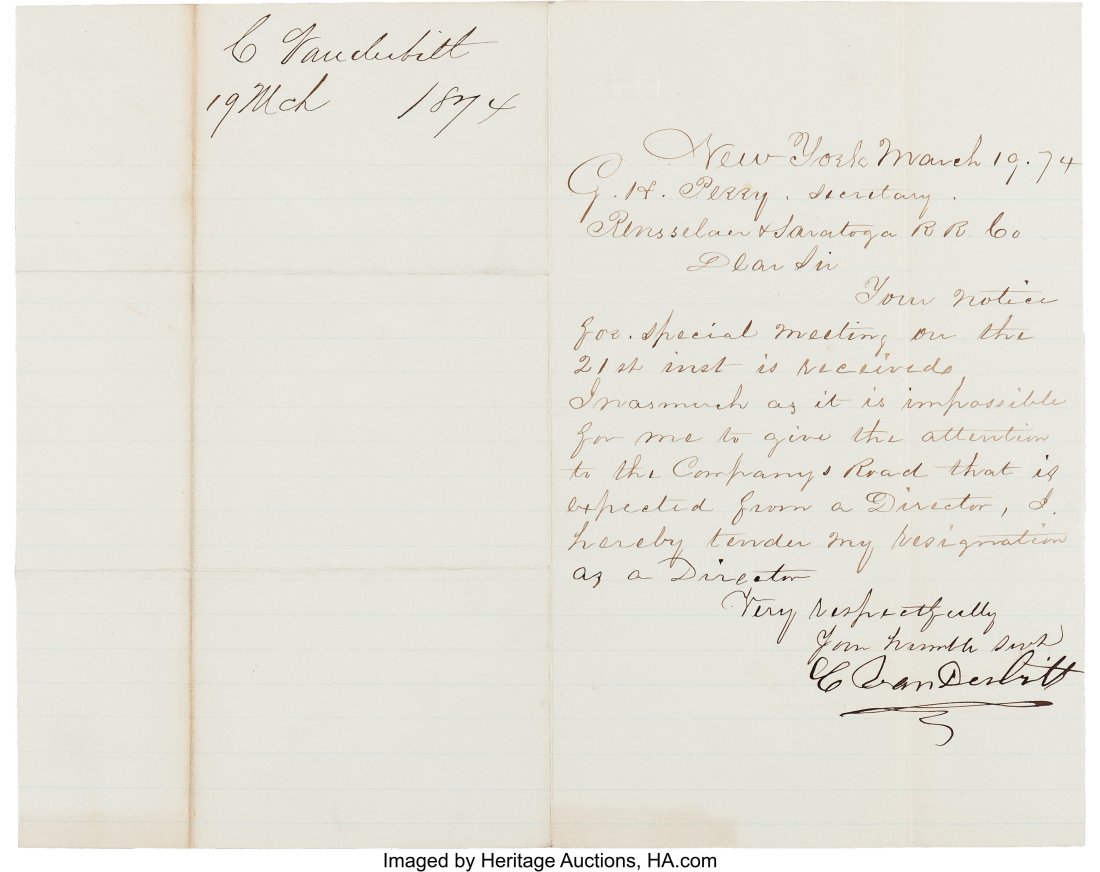 C Vanderbilt
19 Mch 1874
New York March 19. 74
G. H. Perry. Secretary.
Rensselaer & Saratoga R R. Co
Dear Sir
Your notice
for. special meeting on the
21st inst is received
Inasmuch as it is impossible
for me to give the attention
to the Companys Road that is
expected from a Director, I.
hereby tender my resignation
as a Director
Very respectfully
Your humble Servt
C VanDerbilt
Imaged by Heritage Auctions, HA.com